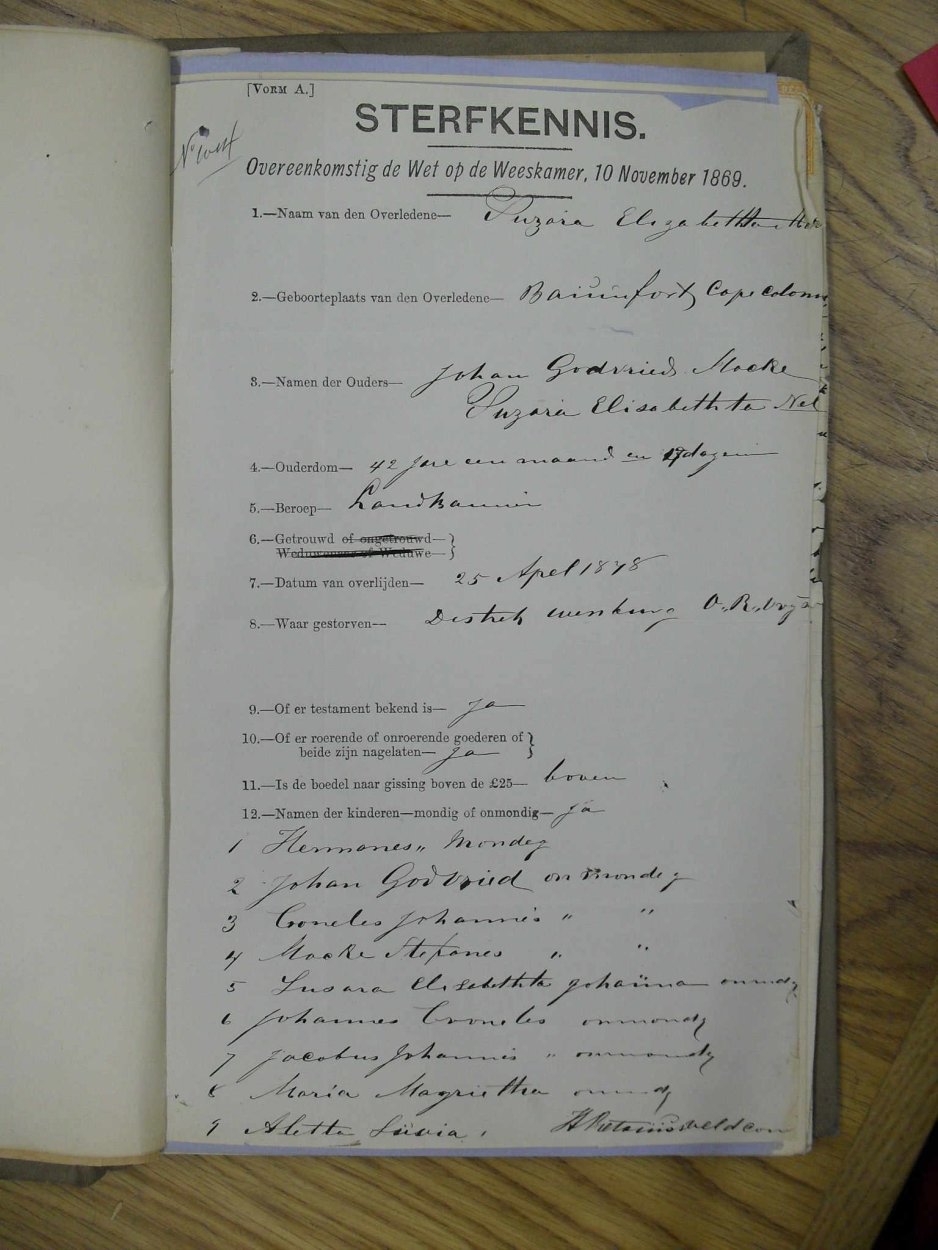 [VORM A.]
STERFKENNIS.
Overeenkomstig de Wet op de Weeskamer, 10 November 1869.
1.—Naam van den Overledene— Suzara Elizabethta
2.—Geboorteplaats van den Overledene— Cape Colony
3.—Namen der Ouders— Johan Godvried Macke
Suzara Elisabethta Nel
4.—Ouderdom— 42 Jare een maand en 17 dagen
5.—Beroep—
6.—Getrouwd of ongetrouwd—
Weduwenaar of Weduwe—
7.—Datum van overlijden— 25 Apel 1878
8.—Waar gestorven— Winburg
9.—Of er testament bekend is— Ja
10.—Of er roerende of onroerende goederen of
beide zijn nagelaten— Ja
11.—Is de boedel naar gissing boven de £25— boven
12.—Namen der kinderen—mondig of onmondig— Ja
1 Hermanes „ Mondeg
2 Johan Godvried onmondeg
3 Corneles Johannes „ „
4 Macke Stefanes „ „
5 Susara Elisabethta Johanna
6 Johannes Corneles onmondg
7 Jacobus Johannis „ onmondg
8 Maria Magrietha
9 Aletta